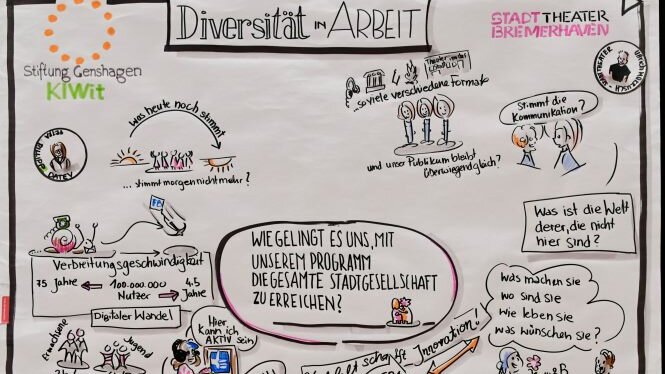 Diversität in ARBEIT
STADTTHEATER
BREMERHAVEN
Stiftung Genshagen
KIWit
Was heute noch stimmt
... stimmt morgen nicht mehr?
DATEV
... so viele verschiedene Formate
und unser Publikum bleibt
überwiegend gleich?
Stimmt die
Kommunikation?
Was ist die Welt
derer, die nicht
hier sind?
Verbreitungsgeschwindigkeit
75 Jahre
100.000.000
Nutzer
4.5
Jahre
Digitaler Wandel
WIE GELINGT ES UNS, MIT
UNSEREM PROGRAMM
DIE GESAMTE STADTGESELLSCHAFT
ZU ERREICHEN?
was machen sie
wo sind sie
wie leben sie
was wünschen sie?
Erwachsene
Jugend
Hier
kann ich
AKTIV sein
schafft
Innovation!